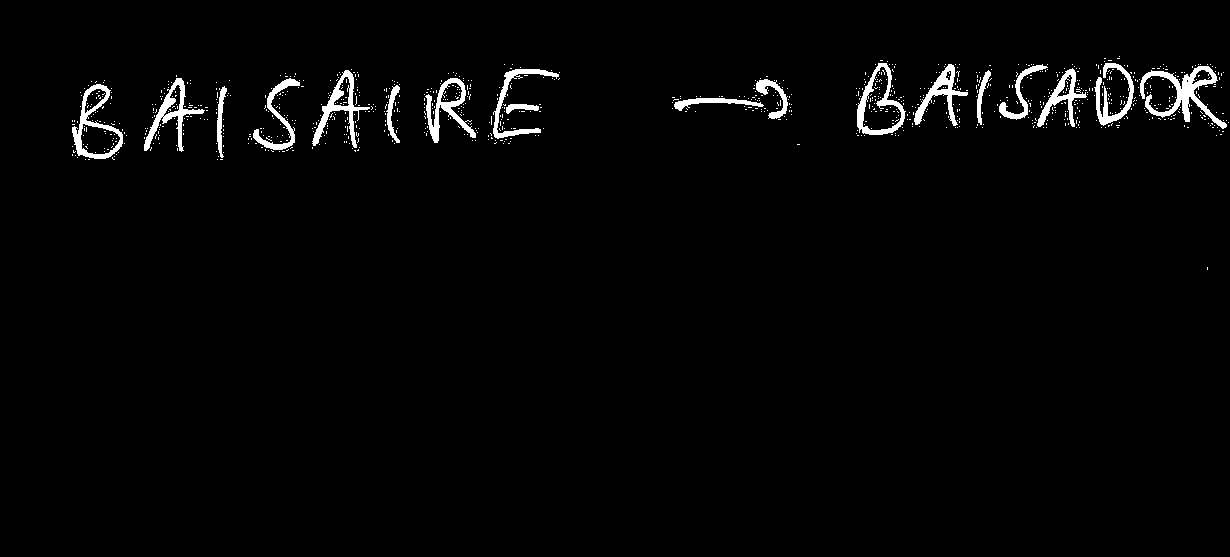 BAISAIRE → BAISADOR